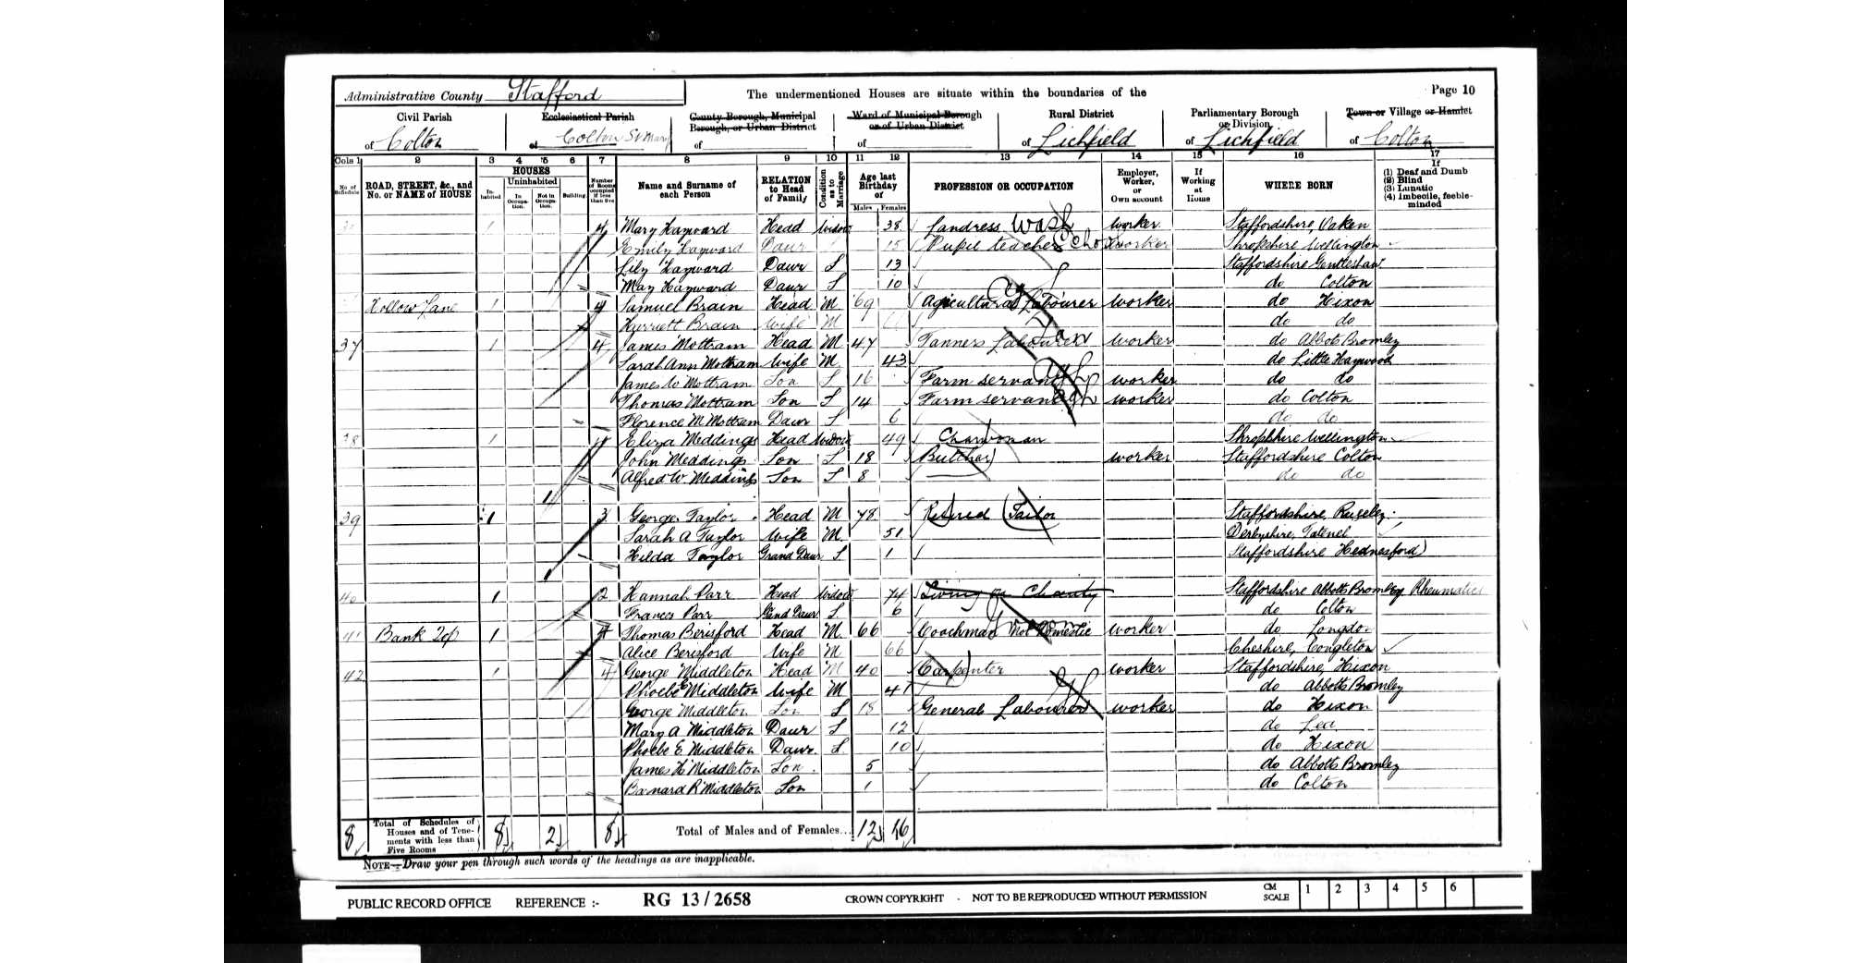 Administrative County Stafford
The undermentioned Houses are situate within the boundaries of the
Page 10
Civil Parish of Colton
Ecclesiastical Parish of Colton St Mary
County Borough, Municipal Borough, or Urban District of
Ward of Municipal Borough or of Urban District of
Rural District of Lichfield
Parliamentary Borough or Division of Lichfield
Town or Village or Hamlet of Colton
Cols 1 2 3 4 5 6 7 8 9 10 11 12 13 14 15 16 17
No. of Schedule
ROAD, STREET, &c., and No. or NAME of HOUSE
HOUSES
Inhabited
Uninhabited
In Occupation.
Not in Occupation.
Building
Number of Rooms occupied if less than five
Name and Surname of each Person
RELATION to Head of Family
Condition as to Marriage
Age last Birthday of
Males Females
PROFESSION OR OCCUPATION
Employer, Worker, or Own account
If Working at Home
WHERE BORN
If (1) Deaf and Dumb (2) Blind (3) Lunatic (4) Imbecile, feeble-minded
1 4 Mary Hayward Head Widow 38 Landress Wash worker Staffordshire, Oaken
Emily Hayward Daur 15 Pupil teacher School worker Shropshire Wellington
Lily Hayward Daur S 13 Staffordshire
May Hayward Daur S 10 do Colton
Hollow Lane 1 4 Samuel Brain Head M 69 Agricultural Labourer worker do Hixon
Harriett Brain Wife M do do
37 1 4 James Mottram Head M 47 Tanners Labourer worker do Abbots Bromley
Sarah Ann Mottram Wife M 43 do Little Haywood
James W Mottram Son S 16 Farm servant worker do do
Thomas Mottram Son S 14 Farm servant worker do Colton
Florence M Mottram Daur S 6 do do
38 1 4 Eliza Meddings Head Widow 49 Charwoman Shropshire Wellington
John Meddings Son S 18 Butcher worker Staffordshire Colton
Alfred W Meddings Son S 8 do do
1
39 1 3 George Taylor Head M 78 Retired Tailor Staffordshire, Rugeley
Sarah A Taylor Wife M 51 Derbyshire,
Hilda Taylor Grand Daur S 1 Staffordshire Hednesford
1
40 1 2 Hannah Parr Head Widow 74 Living on Charity Staffordshire Abbotts Bromley Rheumatics
Frances Parr Grnd Daur S 6 do Colton
41 Bank Top 1 4 Thomas Berisford Head M 66 Coachman Not Domestic worker do Longdon
Alice Berisford Wife M 66 Cheshire, Congleton
42 1 4 George Middleton Head M 40 Carpenter worker Staffordshire, Hixon
Phoebe Middleton Wife M 41 do Abbotts Bromley
George Middleton Son S 18 General Labourer worker do Hixon
Mary A Middleton Daur S 12 do Lea
Phoebe E Middleton Daur S 10 do Hixon
James H Middleton Son 5 do Abbotts Bromley
Bernard R Middleton Son 1 do Colton
8 Total of Schedules of Houses and of Tenements with less than Five Rooms 8 2 8 Total of Males and of Females... 12 16
NOTE—Draw your pen through such words of the headings as are inapplicable.
PUBLIC RECORD OFFICE REFERENCE :- RG 13 / 2658 CROWN COPYRIGHT - NOT TO BE REPRODUCED WITHOUT PERMISSION CM SCALE 1 2 3 4 5 6